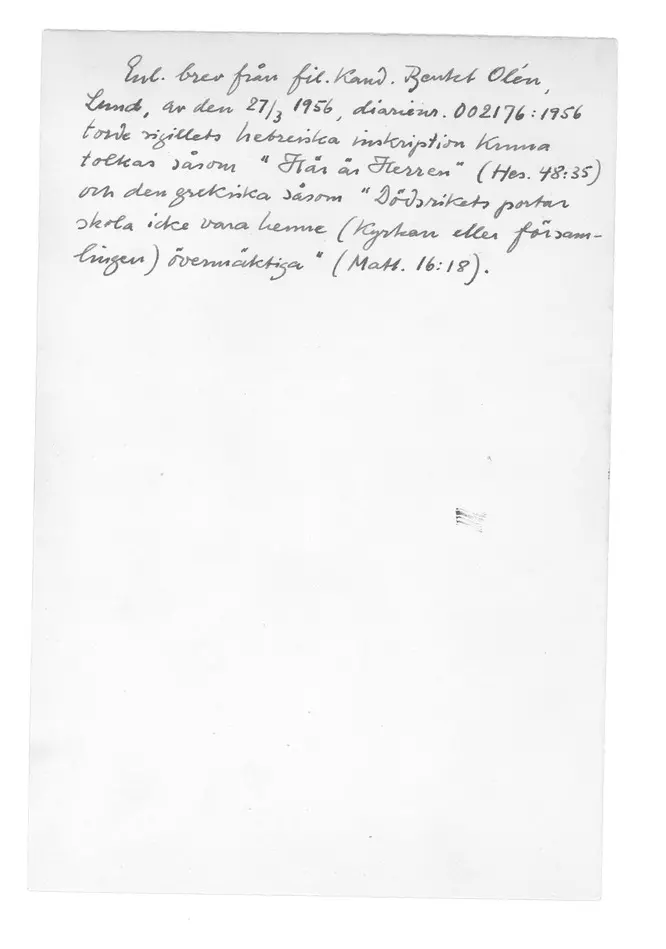 Enl. brev från fil. kand. Bentet Olén,
Lund, av den 27/3 1956, diarienr. 002176:1956
torde sigillets hebreiska inskription kunna
tolkas såsom "Här är Herren" (Hes. 48:35)
och den grekiska såsom "Dödsrikets portar
skola icke vara henne (kyrkan eller försam-
lingen) övermäktiga" (Matt. 16:18).